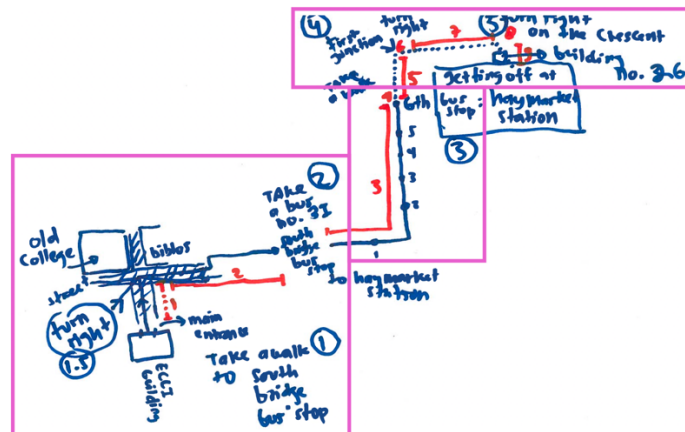 4
turn
right
first
junction
6
7
5
turn right
on the Crescent
8
9
building
no. 26
take
a walk
5
4
6th
getting off at
bus
stop:
haymarket
station
3
5
4
3
2
1
3
2
TAKE
a bus
no. 31
south
bridge
bus
stop
to haymarket
station
old
college
biblos
street
2
1
turn
right
1.5
main
entrance
ECCI
building
1
Take a walk
to south
bridge
bus stop